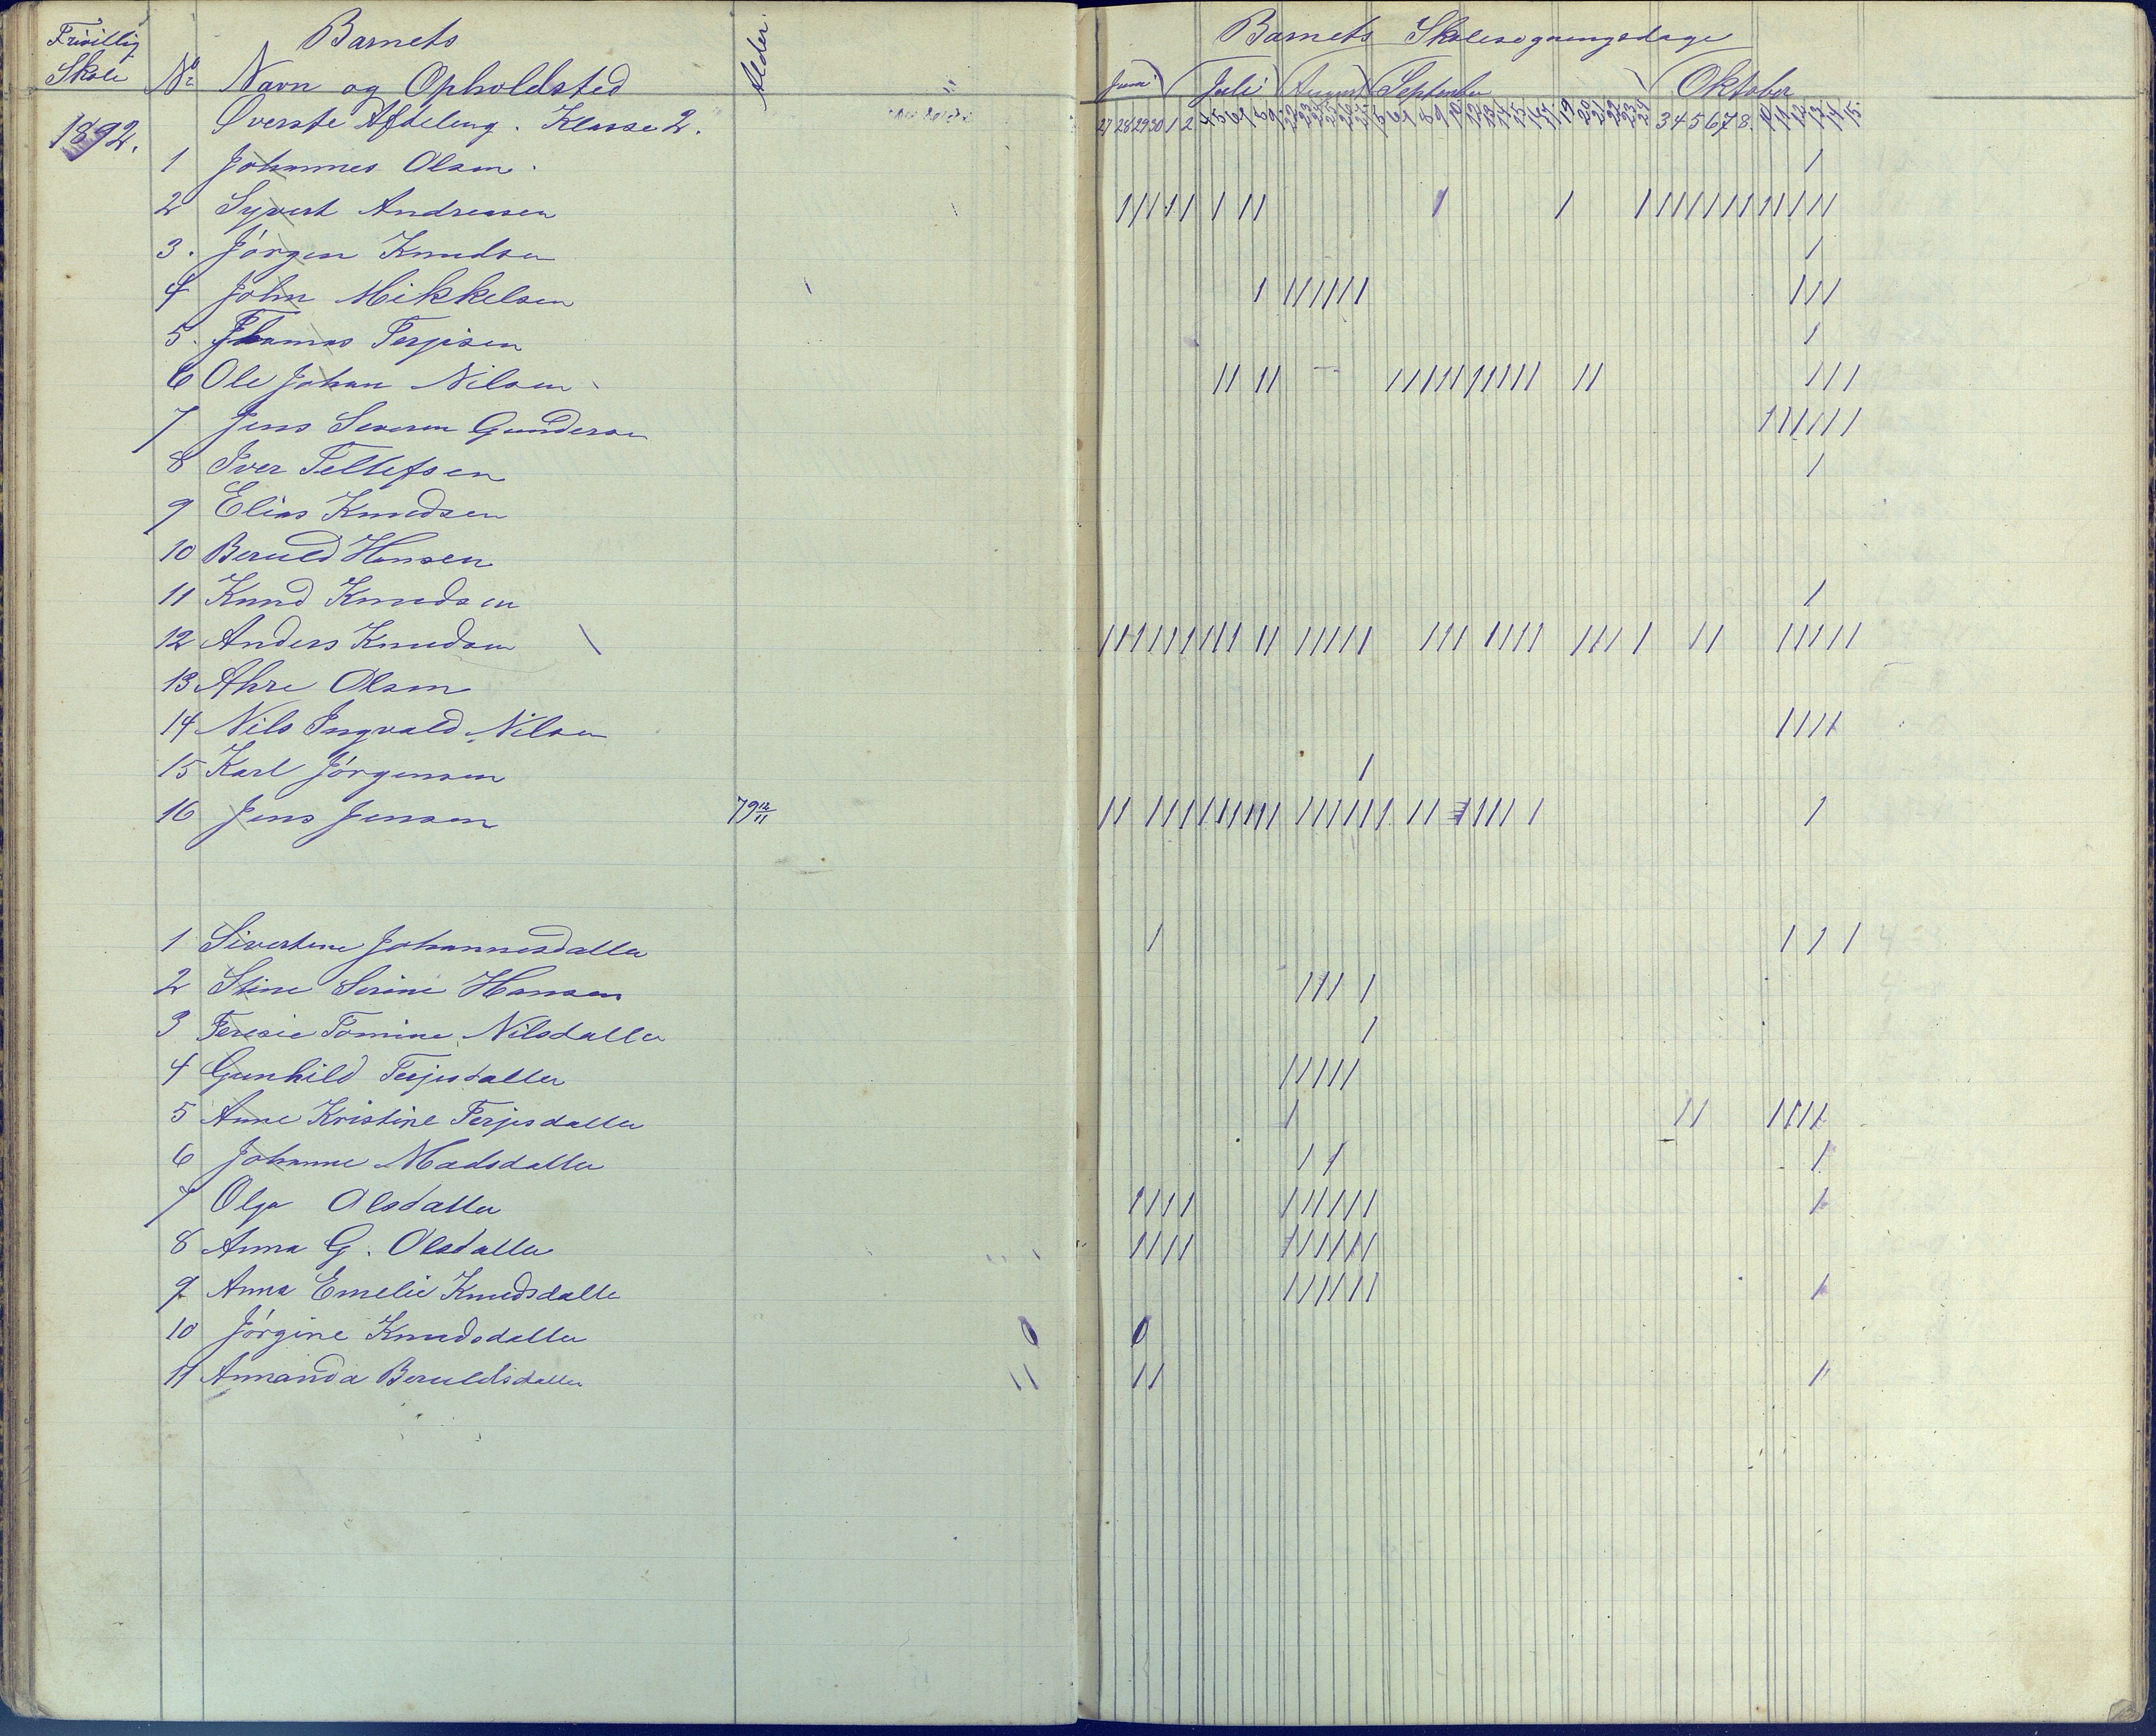 Frivillig
Skole
1892.
Barnets
No Navn og Opholdsted
Alder.
Øverste Afdeling. Klasse 2.
1 Johannes Olsen.
2 Syvert Andreasen
3. Jørgen Knudsen
4 John Mikkelsen
5. Thomas Terjesen
6 Ole Johan Nilsen
7 Jens Severin Gundersen
8 Iver Tellefsen
9 Elias Knudsen
10 Beruld Hansen
11 Knud Knudsen
12 Anders Knudsen
13 Ahre Olsen
14 Nils Ingvald Nilsen
15 Karl Jørgensen
16 Jens Jensen 79 12/11
1 Sivertine Johannesdatter
2 Stine Serine Hansen
3 Teresie Tomine Nilsdatter
4 Gunhild Terjesdatter
5 Anne Kristine Terjesdatter
6 Johanne Madsdatter
7 Olga Olsdatter
8 Anna G. Olsdatter
9 Anna Emelie Knudsdatte
10 Jørgine Knudsdatter
11 Amanda Beruldsdatter
Barnets Skolesøgningsdage
Juni Juli August September Oktober
27 28 29 30 1 2 4 5 6 7 8 9 3 4 5 6 7 8. 10 11 12 13 14 15.